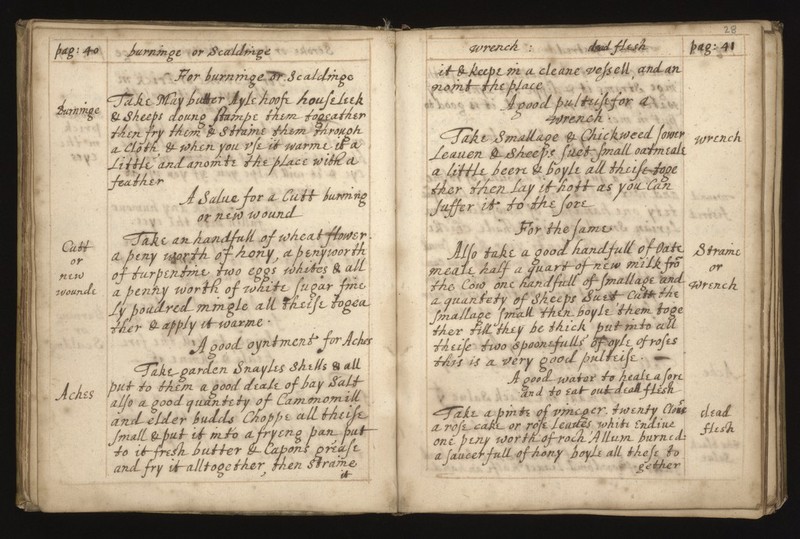 pag: 40
burninge or Scaldinge
For burninge or Scaldinge
Burninge
Take May butter Ayle hoofe houseleek
& Sheeps doung stampe them togeather
then fry them & straine them through
a Cloth & when you vse it warme it a
Little and anointe the place with a
feather
A Salue for a Cutt burning
or new wound
Cutt
or
new
wounde
Take an handfull of wheat flower
a peny worth of hony, a penyworth
of turpentine two eggs whites & all
a penny worth of white sugar fine
Ly poudred mingle all theise togea
ther & apply it warme.
A good oyntment for Aches
Aches
Take garden Snayles Shells & all
put to them a good deale of bay Salt
also a good quantety of Camonomill
and elder budds Choppe all theise
small & put it into a fryeng pan put
to it fresh butter & Capons grease
and fry it alltogether, then straine
it
28
wrench : dead flesh
pag: 41
it & keepe in a cleane vessell and an
noint the place
A good pultuise for a
wrench.
wrench
Take Smallage & Chickweed sower
Leauen & Sheeps suet small oatmeale
a little beere & boyle all theise toge
ther then Lay it hott as you Can
suffer it to the sore
For the same
Straine
or
wrench
Also take a good handfull of Oate
meale half a quart of new milk fro
the Cow one handfull of smallage and
a quantety of Sheeps Suet Cutt the
smallage small then boyle them toge
ther till they be thick put into all
theise two spoonefulls of oyle of roses
this is a very good pulteise.
A good water to heale a sore
and to eat out dead flesh
dead
flesh
Take a pinte of vineger, twenty Cloues
a rose cake or rose Leaues white Endiue
one peny worth of roch Allum burned
a saucerfull of hony boyle all these to
gether